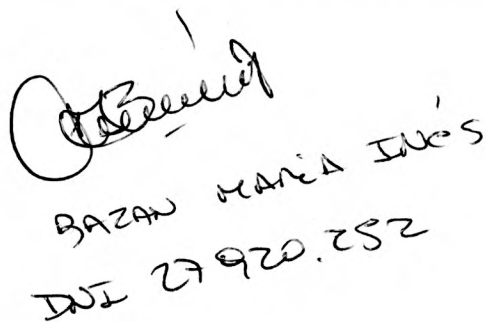 BAZAN MARIA INÉS
DNI 27920.252